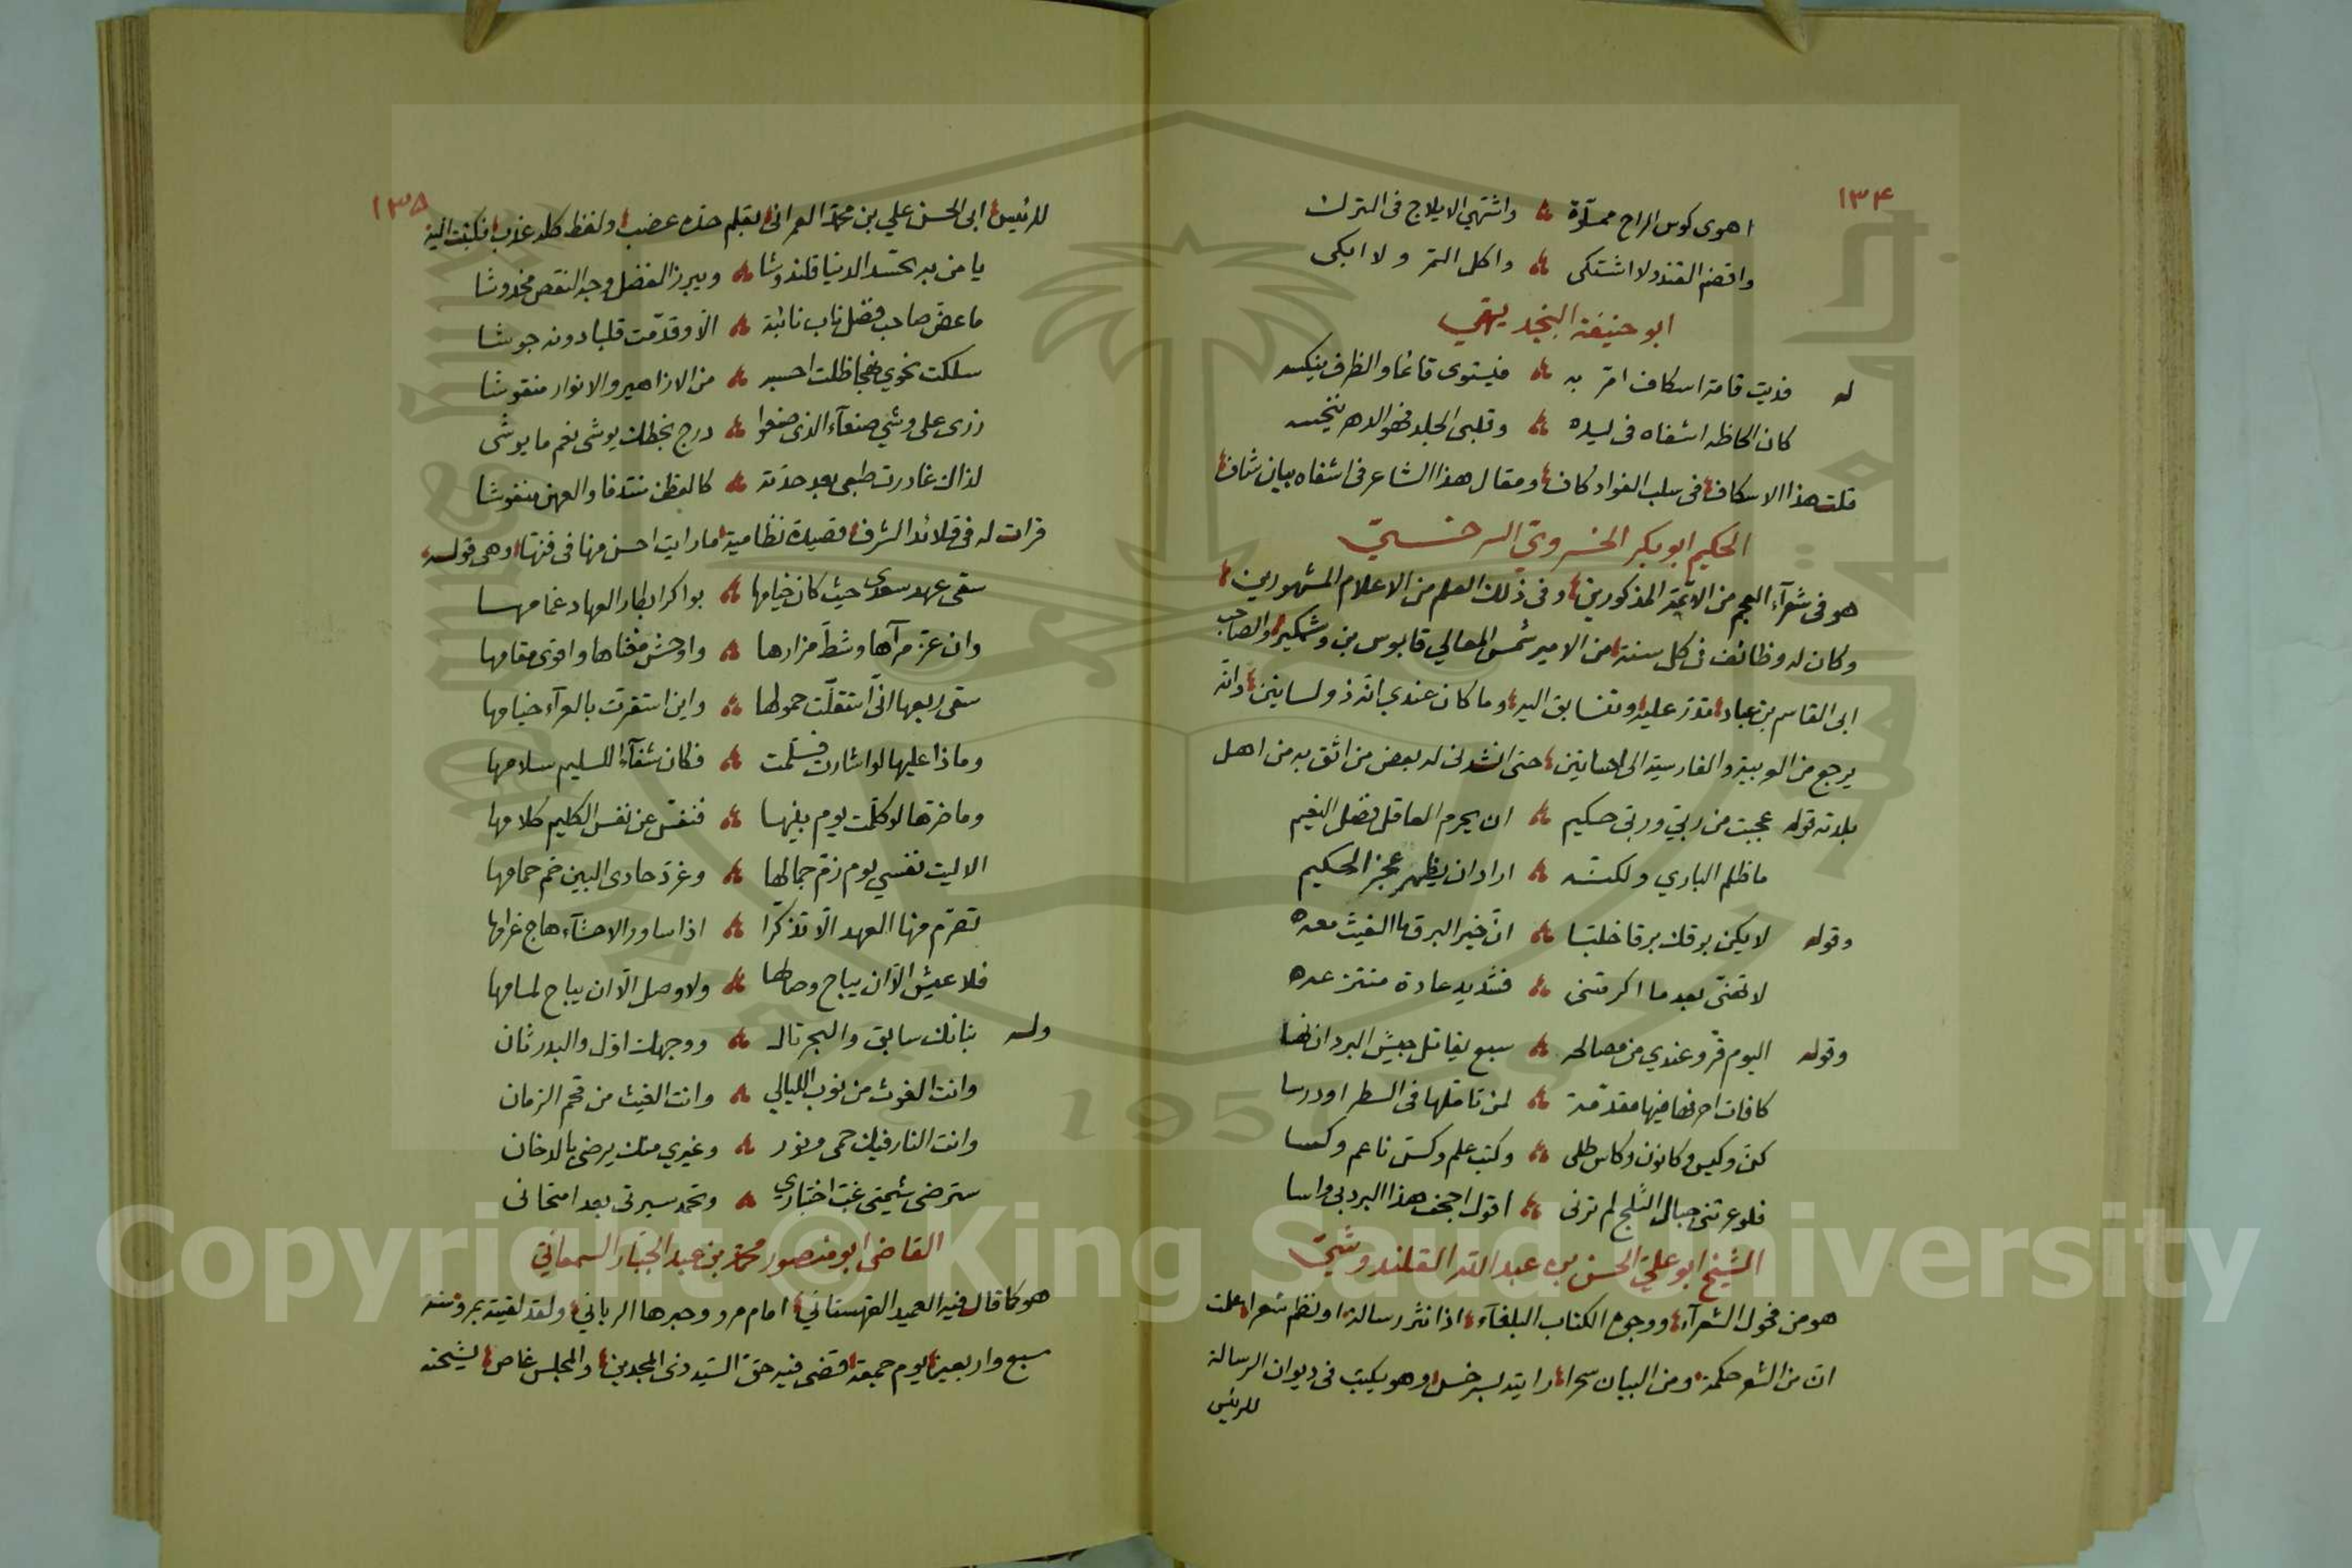 ١٣٤
اهوى كوس الراح مملوّة ۞ واشتهي الايلاج في الترك
واقضم القند ولا اشتكى ۞ واكل التمر ولا ابكى
ابو حنيفة البنجديهي
له فديت قامة اسكاف امرّ به ۞ فيستوى قائما والظرف ينكسه
كان الحاظه اشفاه في ليده ۞ وقلبى الجلد فهو الدهر ينخسه
قلت هذا الاسكاف في سلب الفواد كاف ومقال هذا الشاعر في اشفاه بيان شاف
الحكيم ابو بكر الخسروي السرخسيّ
هو في شعرآء العجم من الائمة المذكورين وفي ذلك العلم من الاعلام المشهورين
وكان له وظائف في كل سنة من الامير شمس المعالي قابوس بن وشمكير والصاحب
ابي القاسم بن عباد تدرّ عليه وتتسابق اليه وما كان عندي انّه ذو لسانين وانّه
يرجع من العربية والفارسية الى احسانين حتى انشدني له بعض من اثق به من اهل
بلدته قوله عجبت من ربي وربي حكيم ۞ ان يحرم العاقل فضل النعيم
ما ظلم الباري ولكنّه ۞ اراد ان يظهر عجز الحكيم
وقوله لا يكن برقك برقا خلبّا ۞ انّ خير البرق ما الغيث معه
لا تهنّي بعد ما اكرمتني ۞ فشديد عادة منتزعه
وقوله اليوم قرّ وعندي من مصالحه ۞ سبع يقاتل جيش البرد انفسا
كافات احرفها فيها مقدّمة ۞ لمن تاملها في السطر او درسا
كنّ وكيس وكانون وكاس طلى ۞ وكتب علم وكسّ ناعم وكسا
فلو عرتني جبال الثلج لم ترني ۞ اقول اجحف هذا البرد بي واسا
الشيخ ابو عليّ الحسن بن عبد الله القلندوشيّ
هو من فحول الشعرآء ووجوه الكتاب البلغآء اذا نثر رسالة او نظم شعرا علمت
انّ من الشعر حكمة ومن البيان سحرا رايته بسرخس وهو يكتب في ديوان الرسالة
للرئيس
١٣٥
للرئيس ابي الحسن علي بن محمد العمراني بقلم حده عضب ولفظ كله عذب فكتبت اليه
يا من به تحسد الدنيا قلندوشا ۞ ويبرز الفضل وجه النقص مخدوشا
ما عضّ صاحب فضل ناب نائبة ۞ الّا وقدّمت قلبا دونه جوشا
سلكت نحوي نهجا ظلت احسبه ۞ من الازاهير والانوار منقوشا
زرى على وشي صنعآء الذي صنعوا ۞ درج بخطك يوشى نعم ما يوشى
لذاك غادرت طبعي بعد حدّته ۞ كالقطن منتدفا والعهن منفوشا
قرات له في قلائد الشرف قصيدة نظامية ما رايت احسن منها في فنها وهي قوله
سقى عهد سعدى حيث كان خيامها ۞ بواكر ابطار العهاد غمامها
وان عزّ مرآها وشطّ مزارها ۞ واوحش مغناها واقوى مقامها
سقى ربعها انّى استقلّت حمولها ۞ واين استقرت بالعرآء خيامها
وماذا عليها لو اشارت فسلّمت ۞ فكان شفآء للسليم سلامها
وما ضرّها لو كلّمت يوم بينها ۞ فنفّس عن نفس الكليم كلامها
الا ليت نفسي يوم زمّ جمالها ۞ وغرّد حادى البين حمّ حمامها
تصرّم منها العهد الّا تذكّرا ۞ اذا ساور الاحشآء هاج غرامها
فلا عيش الّا ان يباح وصالها ۞ ولا وصل الّا ان يباح لمامها
وله بنانك سابق والبحر تال ۞ ووجهك اوّل والبدر ثان
وانت الغوث من نوب الليالي ۞ وانت الغيث من قحم الزمان
وانت النار فيك حمى ونور ۞ وغيري منك يرضى بالدخان
سترضى شيمتي غبّ اختباري ۞ وتحمد سيرتي بعد امتحاني
القاضي ابو منصور محمد بن عبد الجبّار السمعانيّ
هو كما قال فيه العميد القهستاني امام مرو وحبرها الرباني ولقد لقيته بمرو سنة
سبع واربعين يوم جمعة قضى فيه حقّ السيد ذي المجدين والمجلس غاصّ
Copyright © King Saud University
1957